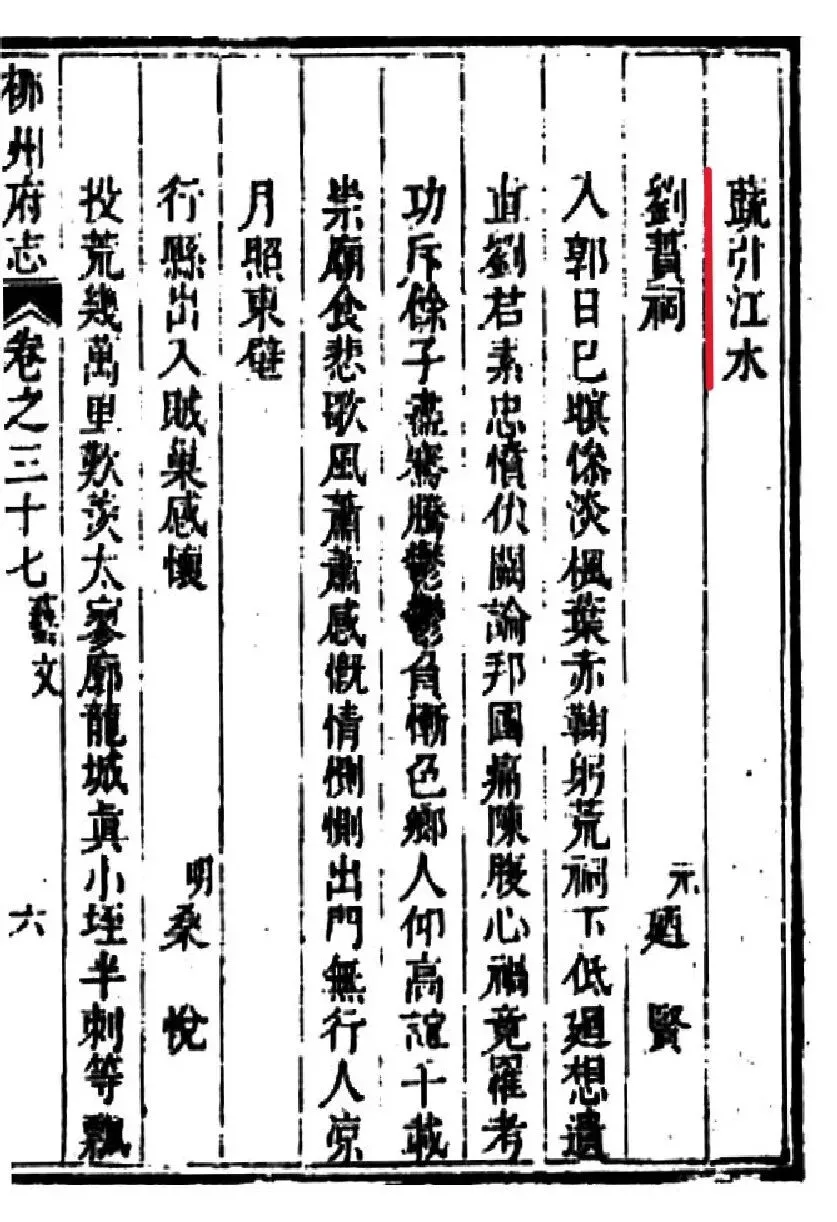 蔬引江水
劉蕡祠 元廼賢
入郭日已暝慘淡楓葉赤鞠躬荒祠下低廻想遺
直劉君素忠憤伏闕論邦國痛陳腹心禍竟罹考
功斥餘子盡騫騰鬱鬱負慚色鄉人仰高誼千載
崇廟食悲歌風蕭蕭感慨情惻惻出門無行人凉
月照東壁
行縣出入賊巢感懷 明桑悅
投荒幾萬里歎茨太寥廓龍城眞小垤半刺等飄
柳州府志 卷之三十七 藝文 六